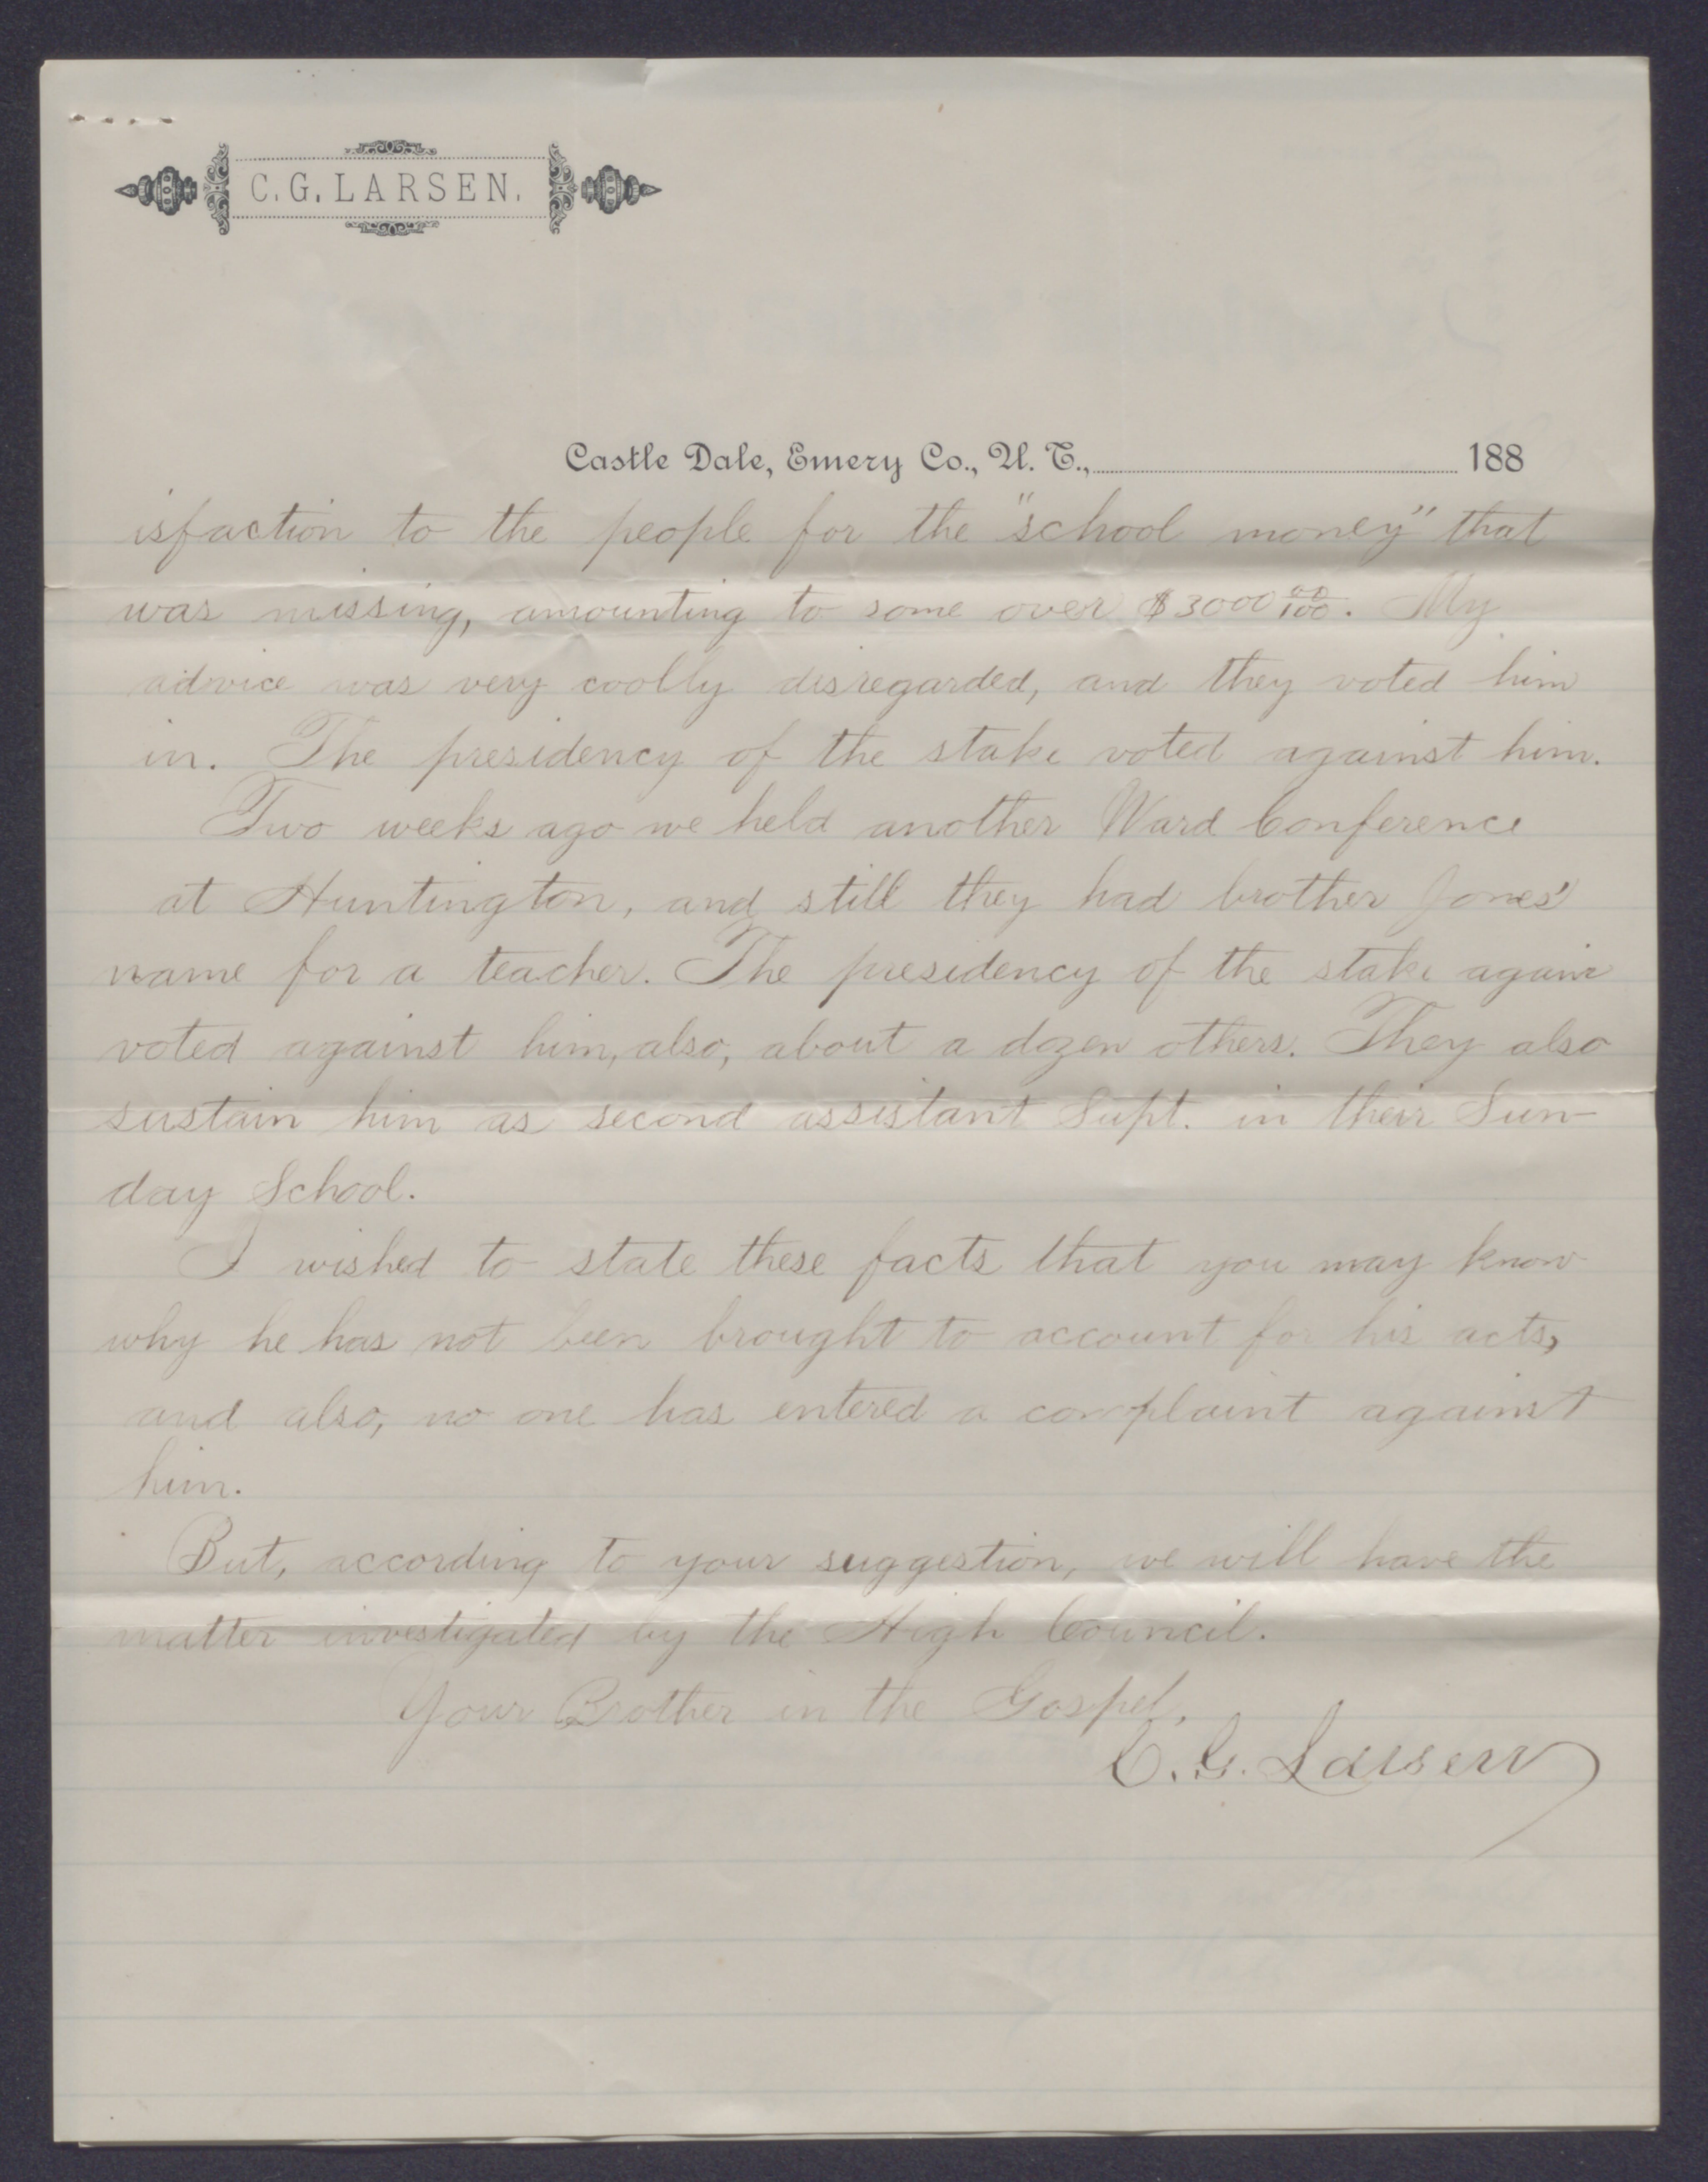 C. G. LARSEN.
Castle Dale, Emery Co., U. T., 188
isfaction to the people for the "school money" that
was missing, amounting to some over $3000 00/100. My
advice was very coolly disregarded, and they voted him
in. The presidency of the stake voted against him.
Two weeks ago we held another Ward Conference
at Huntington, and still they had brother Jones'
name for a teacher. The presidency of the stake again
voted against him, also, about a dozen others. They also
sustain him as second assistant Supt. in their Sun-
day School.
I wished to state these facts that you may know
why he has not been brought to account for his acts,
and also, no one has entered a complaint against
him.
But, according to your suggestion, we will have the
matter investigated by the High Council.
Your Brother in the Gospel,
C. G. Larsen